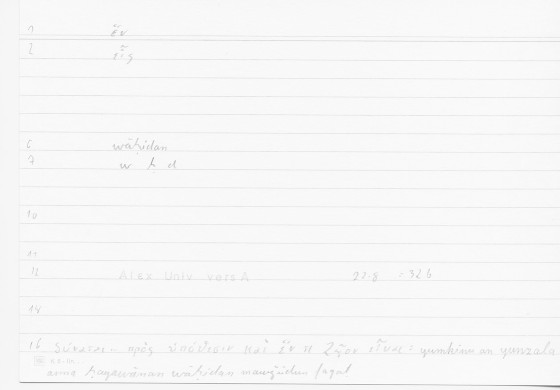 1 ἕν
2 εἷς
6 wāḥidan
7 w ḥ d
10
11
12 Alex Univ vers A 27.8 = 32 b
14
16 δύναται πρὸς ὑπόθεσιν καὶ ἓν ζῷον εἶναι: yumkinu an yunzala
anna ḥayawānan wāḥidan mauǧūdun faqaṭ